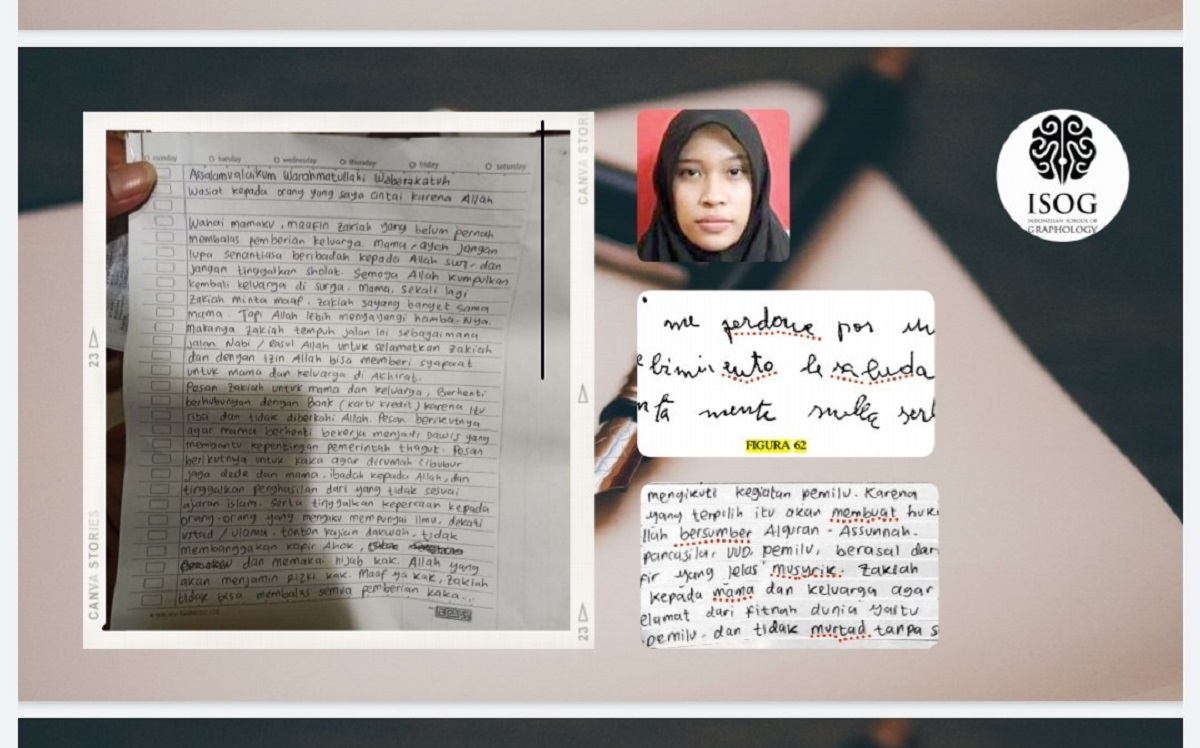 monday tuesday wednesday thursday friday saturday
Assalamualaikum Warahmatullahi Wabarakatuh
Wasiat kepada orang yang saya cintai karena Allah
Wahai mamaku, maafin zakiah yang belum pernah
membalas pemberian keluarga. mama, ayah jangan
lupa senantiasa beribadah kepada Allah swt. dan
jangan tinggalkan sholat. Semoga Allah kumpulkan
kembali keluarga di surga. Mama, sekali lagi
zakiah minta maaf. zakiah sayang banget sama
mama. Tapi Allah lebih menyayangi hamba-Nya.
makanya zakiah tempuh jalan ini sebagaimana
jalan Nabi / Rasul Allah untuk selamatkan zakiah
dan dengan izin Allah bisa memberi syafaat
untuk mama dan keluarga di Akhirat.
Pesan zakiah untuk mama dan keluarga, Berhenti
berhubungan dengan Bank (kartu kredit) karena itu
riba dan tidak diberkahi Allah. Pesan berikutnya
agar mama berhenti bekerja menjadi Dawis yang
membantu kepentingan pemerintah thagut. Pesan
berikutnya untuk kaka agar dirumah cibubur
jaga dede dan mama, ibadah kepada Allah, dan
tinggalkan penghasilan dari yang tidak sesuai
ajaran islam. Serta tinggalkan kepercaan kepada
orang-orang yang mengaku mempunyai ilmu, dekati
ustad / ulama. tonton kajian dakwah. tidak
membanggakan kafir Ahok,
dan memakai hijab kak. Allah yang
akan menjamin Rizki kak. Maaf ya kak, zakiah
tidak bisa membalas semua pemberian kaka...
CANVA STORIES
23
CANVA STORIES
23
ISOG
INDONESIAN SCHOOL OF
GRAPHOLOGY
me perdone por
la saluda
mente
FIGURA 62
mengikuti kegiatan pemilu. Karena
yang terpilih itu akan membuat huk
llah bersumber Alquran - Assunnah.
pancasila, UUD, pemilu, berasal dar
fir yang jelas musyrik. Zakiah
kepada mama dan keluarga agar
elamat dari fitnah dunia yaitu
pemilu. dan tidak murtad tanpa s